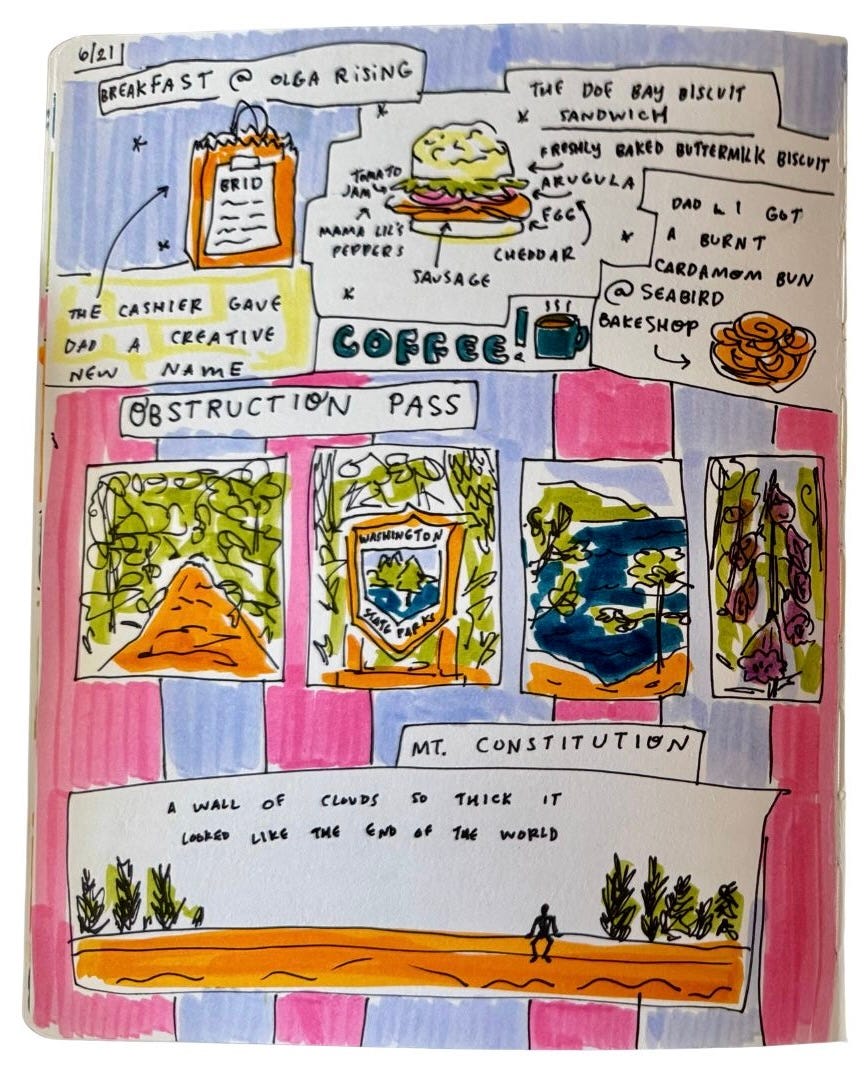 6/21
BREAKFAST @ OLGA RISING
BRID
THE CASHIER GAVE
DAD A CREATIVE
NEW NAME
THE DOE BAY BISCUIT
SANDWICH
FRESHLY BAKED BUTTERMILK BISCUIT
TOMATO
JAM
ARUGULA
MAMA LIL'S
PEPPERS
EGG
CHEDDAR
SAUSAGE
COFFEE!
DAD & I GOT
A BURNT
CARDAMOM BUN
@ SEABIRD
BAKESHOP
OBSTRUCTION PASS
WASHINGTON
STATE PARKS
MT. CONSTITUTION
A WALL OF CLOUDS SO THICK IT
LOOKED LIKE THE END OF THE WORLD